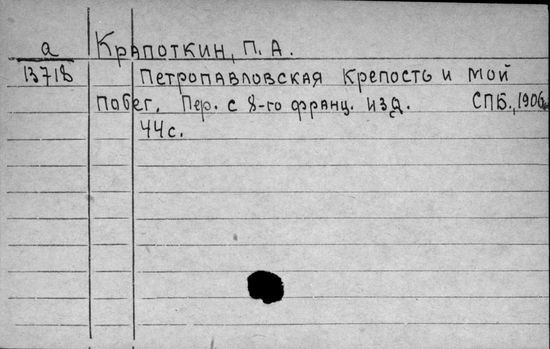 а Крапоткин, П. А.
13718 Петропавловская Крепость и мой
побег. Пер. с 8-го франц. изд. СПБ., 1906.
44 с.